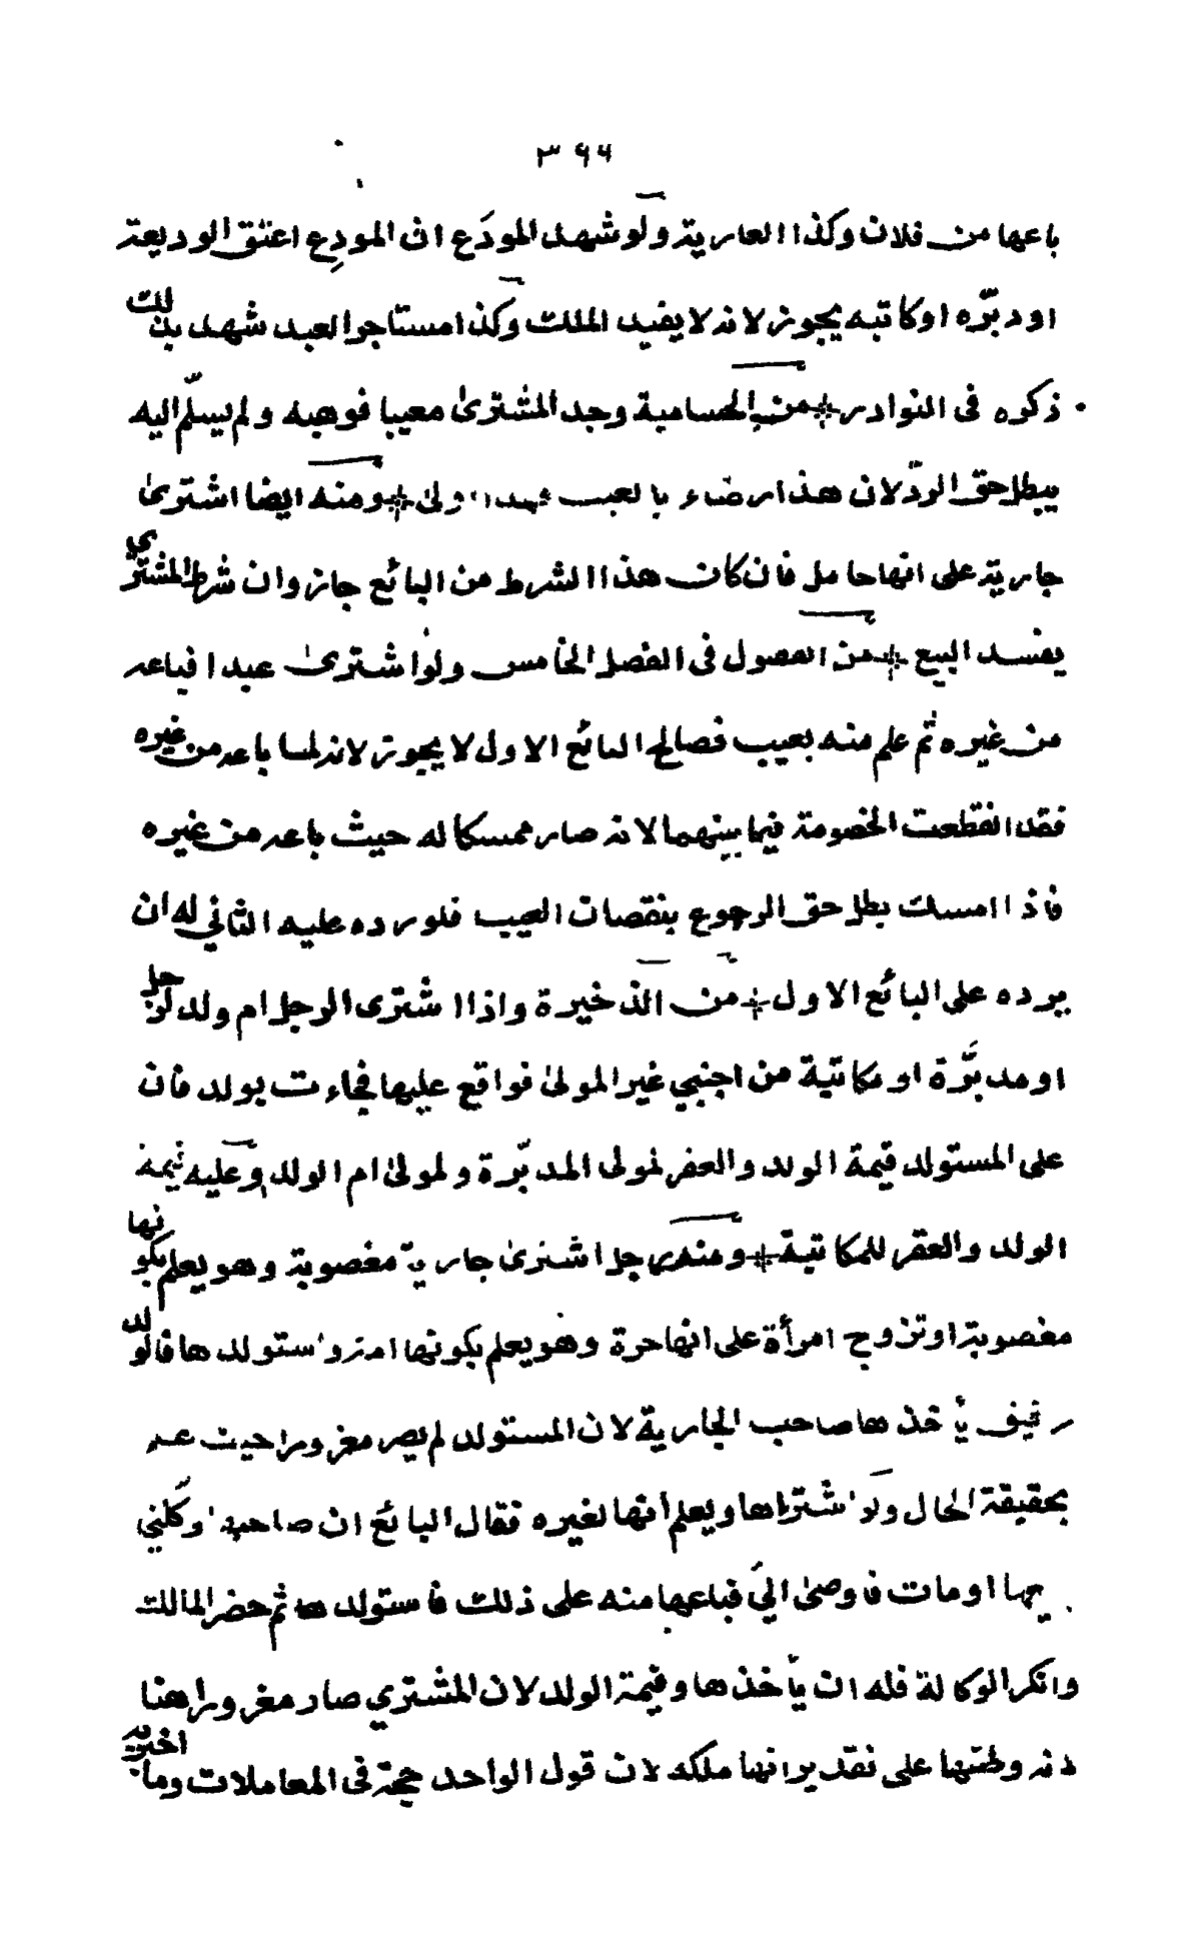 ٣٩٩
باعها من فلان وكذا العارية ولو شهد المودَع ان المودِع اعتق الوديعة
او دبّره او كاتبه يجوز لانه لا يفيد الملك وكذا مستاجر العبد شهد بذلك
ذكره فى النوادر من الحسامية وجد المشترى معيبا فوهبه ولم يسلّم اليه
يبطل حق الردّ لان هذا رضاء بالعيب ومنه ايضا اشترى
جارية على انها حامل فان كان هذا الشرط من البائع جاز وان شرط المشتري
يفسد البيع من الفصول فى الفصل الخامس ولو اشترى عبدا فباعه
من غيره ثم علم منه بعيب فصالح البائع الاول لا يجوز لانه لما باعه من غيره
فقد انقطعت الخصومة فيما بينهما لانه صار ممسكا له حيث باعه من غيره
فاذا امسك بطل حق الرجوع بنقصان العيب فلو رده عليه الثاني له ان
يرده على البائع الاول من الذخيرة واذا اشترى الرجل ام ولد لرجل
او مدبّرة او مكاتبة من اجنبي غير المولى فواقع عليها فجاءت بولد فان
على المستولد قيمة الولد والعقر لمولى المدبّرة ولمولى ام الولد وعليه قيمة
الولد والعقر للمكاتبة ومنه رجل اشترى جارية مغصوبة وهو يعلم بكونها
مغصوبة او تزوج امرأة على انها حرة وهو يعلم بكونها امة واستولدها فالولد
رقيق يأخذها صاحب الجارية لان المستولد لم يصر مغرورا حيث علم
بحقيقة الحال ولو اشتراها ويعلم أنها لغيره فقال البائع ان صاحبها وكلني
بيعها او مات فاوصى اليّ فباعها منه على ذلك فاستولدها ثم حضر المالك
وانكر الوكالة فله ان يأخذها وقيمة الولد لان المشتري صار مغرورا هنا
لانه وطئها على تقدير انها ملكه لان قول الواحد حجة فى المعاملات وما اخبر به